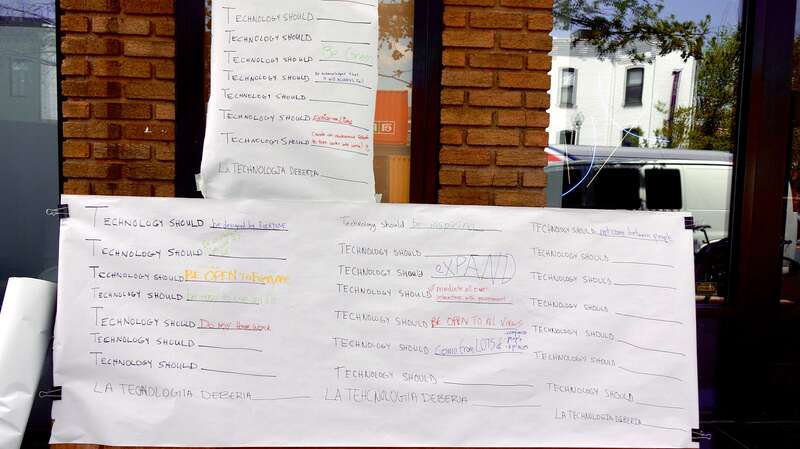 TECHNOLOGY SHOULD
TECHNOLOGY SHOULD
TECHNOLOGY SHOULD Be Green
TECHNOLOGY SHOULD be acknowledged that it will always fail
TECHNOLOGY SHOULD
TECHNOLOGY SHOULD
TECHNOLOGY SHOULD
LA TECNOLOGIA DEBERIA
TECHNOLOGY SHOULD be designed by EVERYONE
TECHNOLOGY SHOULD
TECHNOLOGY SHOULD BE OPEN to Everyone
TECHNOLOGY SHOULD
TECHNOLOGY SHOULD Do my homework
TECHNOLOGY SHOULD
TECHNOLOGY SHOULD
LA TECNOLOGIIA DEBERIA
Technology should be inspiring
TECHNOLOGY SHOULD
TECHNOLOGY SHOULD eXPAND
TECHNOLOGY SHOULD mediate all our interactions with environment
TECHNOLOGY SHOULD BE OPEN TO ALL VIEWS
TECHNOLOGY SHOULD Come from LOTS of people places
TECHNOLOGY SHOULD
LA TEHCNOLOGIIA DEBERIA
TECHNOLOGY SHOULD not come between people
TECHNOLOGY SHOULD
TECHNOLOGY SHOULD
TECHNOLOGY SHOULD
TECHNOLOGY SHOULD
TECHNOLOGY SHOULD
TECHNOLOGY SHOULD
LA TECHNOLOGIA DEBERIA